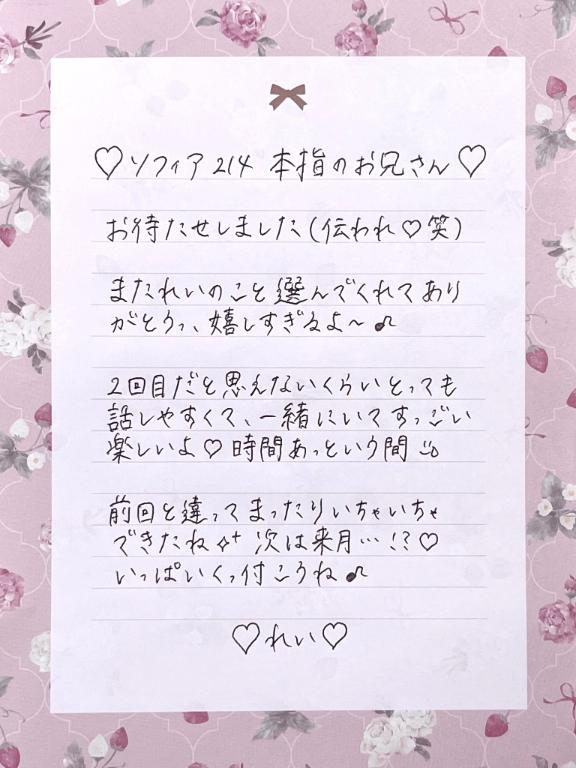 ♡ソフィア214 本指のお兄さん♡
お待たせしました(伝われ♡笑)
またれいのこと選んでくれてあり
がとうっ、嬉しすぎるよ〜♪
2回目だと思えないくらいとっても
話しやすくて、一緒にいてすっごい
楽しいよ♡時間あっという間
前回と違ってまったりいちゃいちゃ
できたね✧⁺ 次は来月…!?♡
いっぱいくっ付こうね♪
♡れい♡